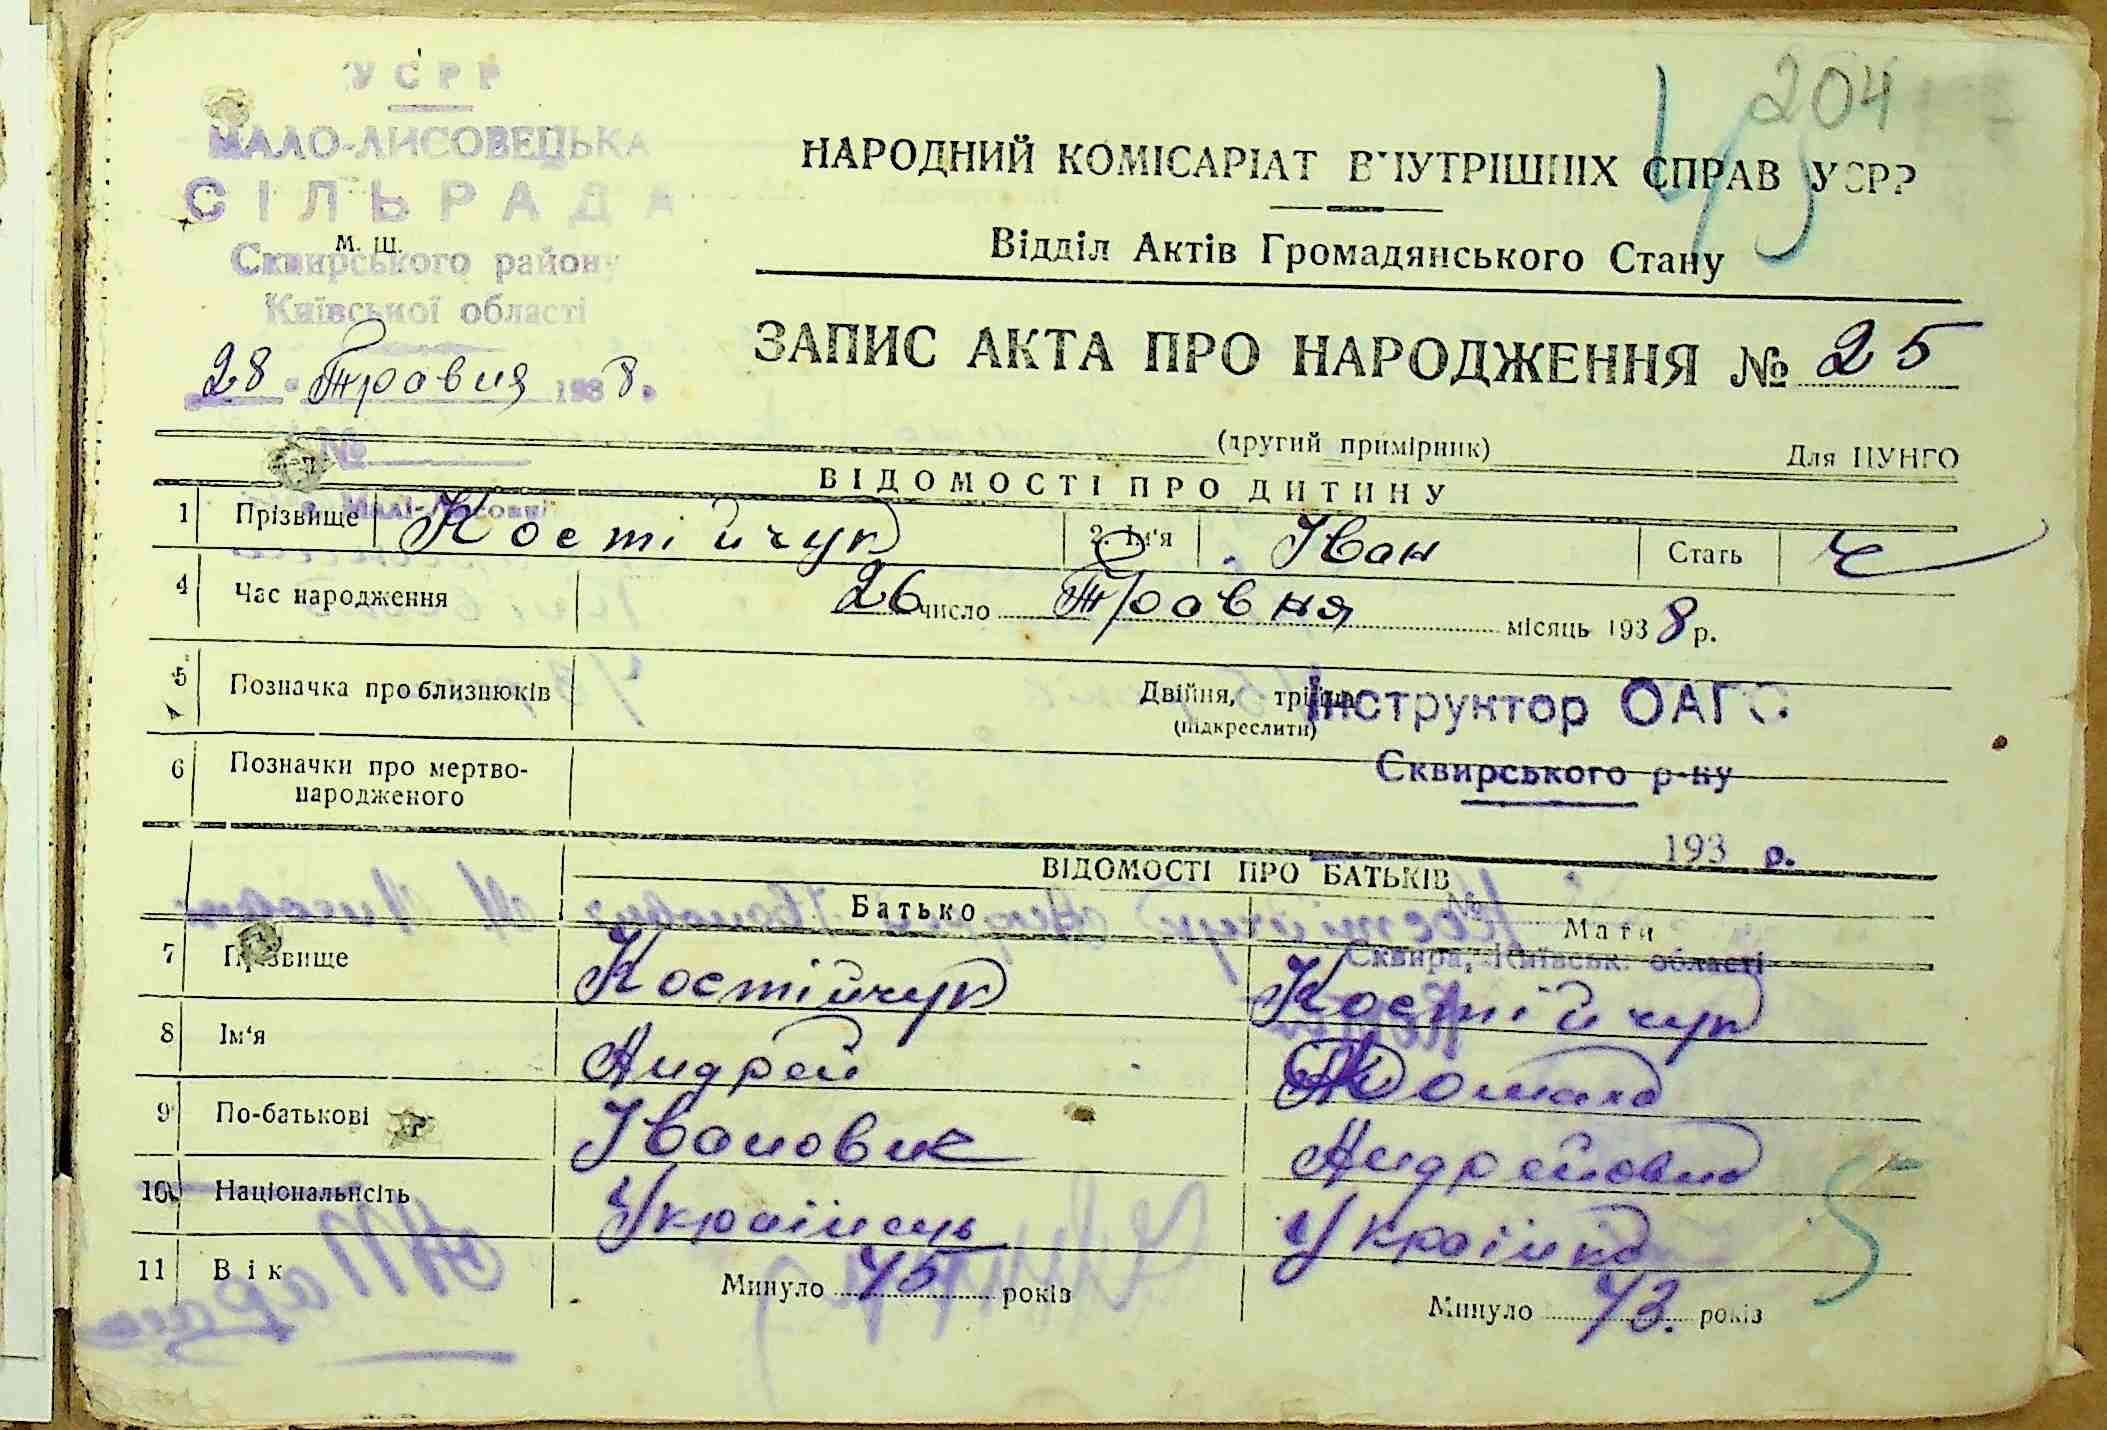 204
УСРР
МАЛО-ЛИСОВЕЦЬКА
СІЛЬРАДА
М. Ш.
Сквирського району
Київської області
28 Травня 1938 р.
№
НАРОДНИЙ КОМІСАРІАТ ВНУТРІШНІХ СПРАВ УСРР
Відділ Актів Громадянського Стану
ЗАПИС АКТА ПРО НАРОДЖЕННЯ № 25
(другий примірник) Для ЦУНГО
ВІДОМОСТІ ПРО ДИТИНУ
1 Прізвище Костійчук 2. Ім'я Іван Стать Ч
4 Час народження 26 число Травня місяць 1938 р.
5 Позначка про близнюків Двійня, трійня
(підкреслити)
Інструктор ОАГС
Сквирського р-ну
6 Позначки про мертво-
народженого
193 р.
ВІДОМОСТІ ПРО БАТЬКІВ
Батько Мати
Сквира, Київськ. області
7 Прізвище Костійчук Костійчук
8 Ім'я Андрей
9 По-батькові Іванович Андрейовна
10 Національнсіть Українець Українка
11 Вік Минуло 45 років Минуло 43. років